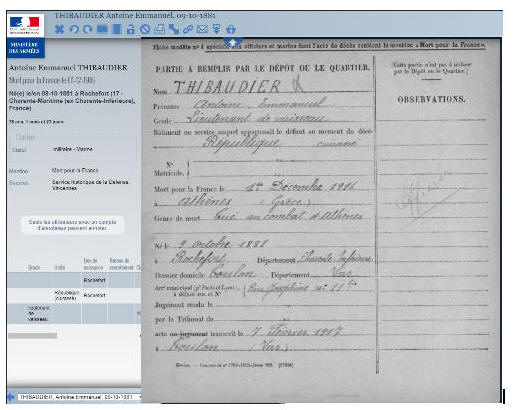 THIBAUDIER Antoine Emmanuel, 09-10-1881
MINISTÈRE
DES ARMÉES
Antoine Emmanuel THIBAUDIER
Mort pour la France le 01-12-1916
Né(e) le/en 09-10-1881 à Rochefort (17 -
Charente-Maritime (ex Charente-Inférieure),
France)
Carrière
Statut militaire - Marine
Mention Mort pour la France
Sources Service historique de la Défense,
Vincennes
Seuls les utilisateurs avec un compte
d'annotateur peuvent annoter
Grade Unité Lieu de
naissance Bureau de
recrutement
Rochefort
République
(cuirassé) Rochefort
lieutenant
de
vaisseau
THIBAUDIER, Antoine Emmanuel, 09-10-1881
Fiche modèle n° 4 spéciale aux officiers et marins dont l'acte de décès contient la mention « Mort pour la France».
PARTIE À REMPLIR PAR LE DÉPÔT OU LE QUARTIER.
Nom THIBAUDIER
Prénoms Antoine, Emmanuel
Grade Lieutenant de vaisseau
Bâtiment ou service auquel appartenait le défunt au moment du décès
République cuirassé
N°
Matricule.
Mort pour la France le 1er Décembre 1916
à Athènes (Grèce)
Genre de mort tué au combat d'Athènes
Né le 9 octobre 1881
à Rochefort Département Charente Inférieure
Dernier domicile Toulon Département Var
Arr<sup>t</sup> municipal (p<sup>r</sup> Paris et Lyon),
à défaut rue et N° Rue Joséphine n° 11
Jugement rendu le
par le Tribunal de
acte ou jugement transcrit le 7 Février 1917
à Toulon (Var)
(Cette partie n'est pas à utiliser
par le Dépôt ou le Quartier.)
OBSERVATIONS.
Officier